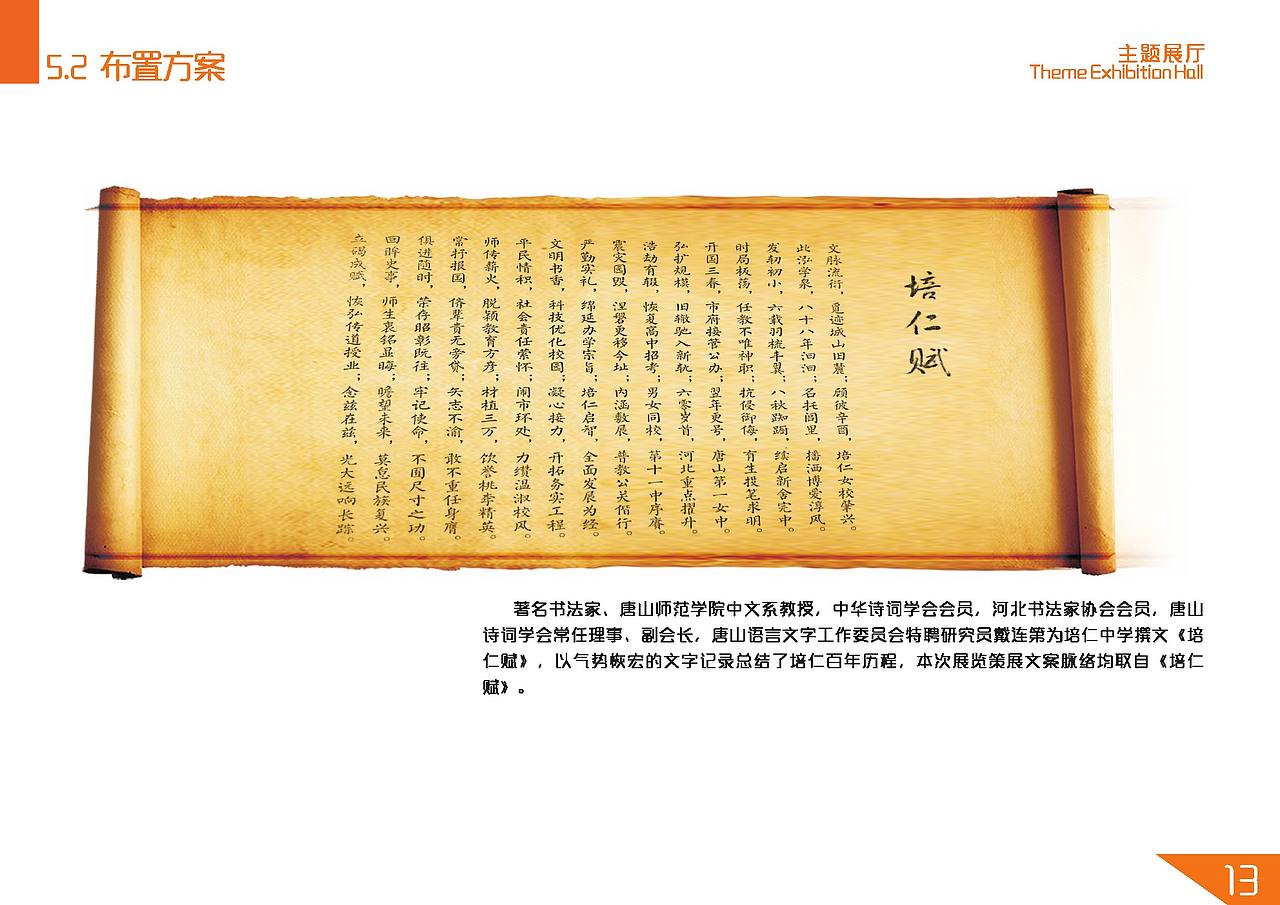 5.2 布置方案
主题展厅
Theme Exhibition Hall
培仁赋
文脉流衍，觅迹城山旧麓；顾彼辛酉，培仁女校肇兴。
此泓学泉，八十八年洄洄；名托闾里，播洒博爱淳风。
发轫初小，六载羽梳丰翼；八秋踟蹰，续启新舍完中。
时局板荡，任教不唯神职；抗侵御侮，有生投笔求明。
开国三春，市府接管公办；翌年更号，唐山第一女中。
弘扩规模，旧辙驰入新轨；六零岁首，河北重点擢升。
浩劫有辍，恢复高中招考；男女同校，第十一中序赓。
震灾园毁，涅槃更移今址；内涵数展，普教公关偕行。
严勤实礼，绵延办学宗旨；培仁启智，全面发展为经。
文明书香，科技优化校园；凝心接力，开拓务实工程。
平民情积，社会责任萦怀；闹市环处，力缵温淑校风。
师传薪火，脱颖教育方彦；材植三万，饮誉桃李精英。
常抒报国，侪辈责无旁贷；矢志不渝，敢不重任身膺。
俱进随时，荣存昭彰既往；牢记使命，不囿尺寸之功。
回眸史事，师生衷铭显晦；瞻望未来，莫怠民族复兴。
立碣成赋，恢弘传道授业；念兹在兹，光大远响长踪。
著名书法家、唐山师范学院中文系教授，中华诗词学会会员，河北书法家协会会员，唐山
诗词学会常任理事、副会长，唐山语言文字工作委员会特聘研究员戴连第为培仁中学撰文《培
仁赋》，以气势恢宏的文字记录总结了培仁百年历程，本次展览策展文案脉络均取自《培仁
赋》。
13